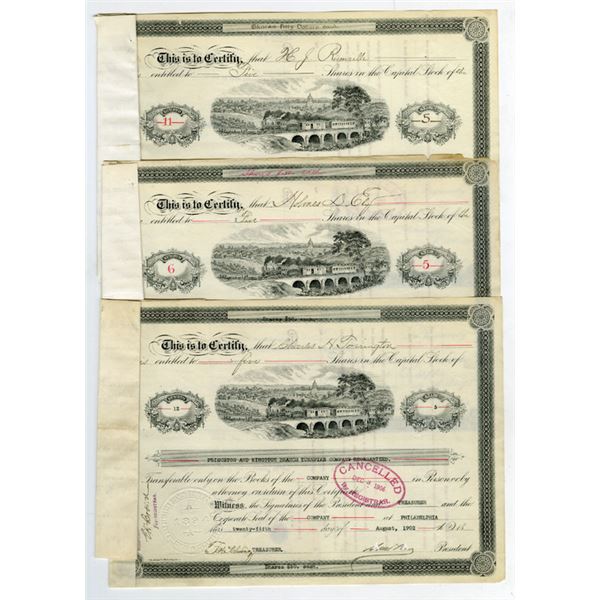 This is to Certify, that H J
entitled to Five Shares in the Capital Stock of the
11
5
This is to Certify, that Holmes D. Ely
entitled to Five Shares in the Capital Stock of the
6
5
Shares $50. each.
This is to Certify, that Charles H Torrington
entitled to five Shares in the Capital Stock of
12
5
PRINCETON AND KINGSTON BRANCH TURNPIKE COMPANY REORGANIZED.
Transferable only on the Books of the COMPANY in Person or by
attorney on surrender of this Certificate
CANCELLED
DEC 3 1904
REGISTRAR.
Witness, the Signatures of the President and TREASURER and the
Corporate Seal of the COMPANY at PHILADELPHIA
this twenty-fifth day of August, 1902 A.D.
TREASURER. President
Shares $50. each.
REGISTRAR.